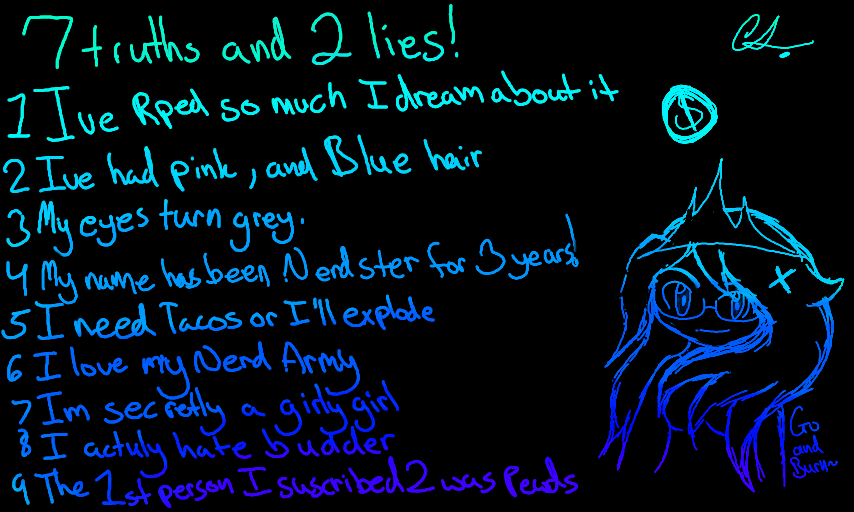 7 truths and 2 lies!
1 Ive Rped so much I dream about it
2 Ive had pink, and Blue hair
3 My eyes turn grey.
4 My name has been Nerdster for 3 years!
5 I need Tacos or I'll explode
6 I love my Nerd Army
7 Im secretly a girly girl
8 I actuly hate budder
9 The 1st person I suscribed 2 was Pearls
Go
and
Burn~